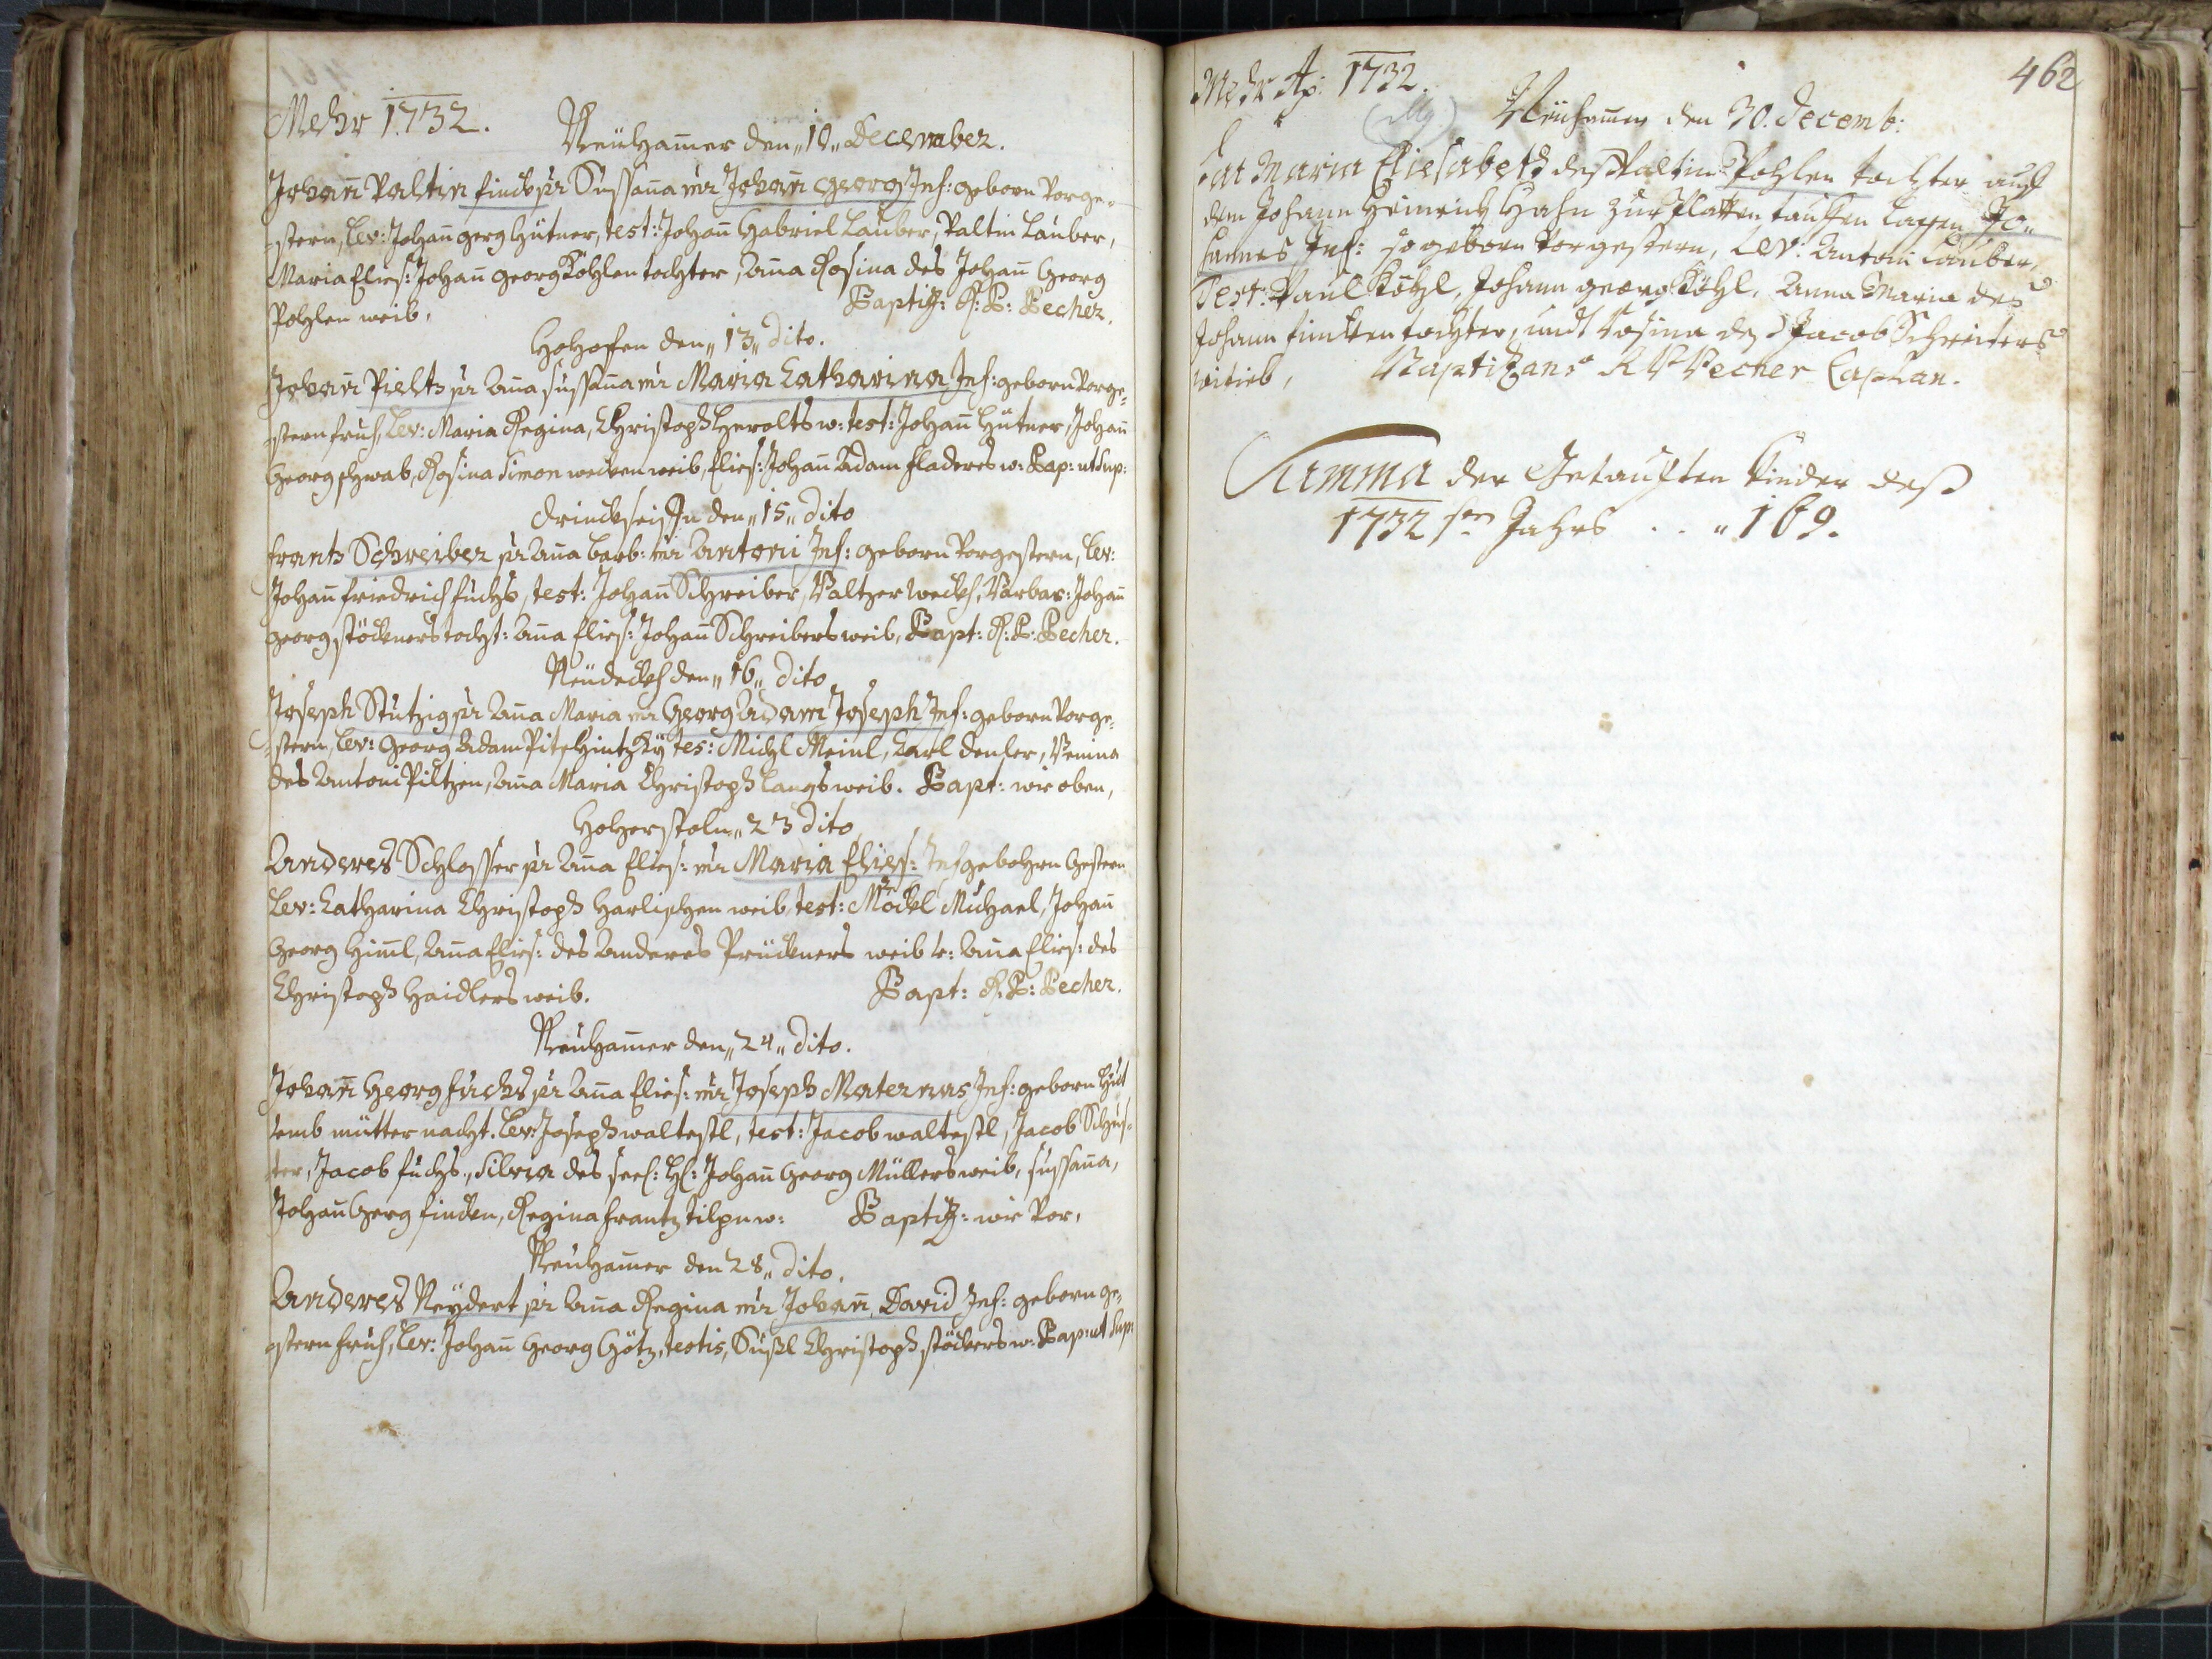 Mehr 1732.
Neüham̄er den „10„ December.
Johan̄ Valtin finck pr Sussan̄a mr Johan̄ georg Inf: geborn Vorge-
-stern, Lev: Johan̄ gerg Hütner, test: Johan̄ Gabriel Lauber, Valtin Lauber,
Maria Elies: Johan̄ georg Köhlen tochter, An̄a Rosina des Johan̄ Georg
Pohlen weib, Baptiz: R: P: Pecher.
Hohofen den „13„ dito.
Johan̄ Pieltz pr An̄a sussan̄a mr Maria Catharina Inf: geborn Vorge-
-stern fruh, Lev: Maria Regina, Christoph Herolts w: test: Johan̄ Hütner, Johan̄
Georg schwab, Rosina Simon weiken weib, Elies: Johan̄ Adam fladeres w: Bap: ut sup:
den „15„ dito
frantz Schreiber pr An̄a barb: mr Antoni Inf: geborn Vorgestern, Lev:
Johan̄ friedrich fuchs, test: Johan̄ Schreiber, Baltzer weckh, Barbar: Johan̄
georg stöckners tocht: An̄a Elies: Johan̄ Schreibers weib, Bapt: R: P: Pecher.
Neudeckh den „16„ dito
Joseph Stutzig pr An̄a Maria mr Georg Adam Joseph Inf: geborn Vorge-
-stern, Lev: Georg Adam tes: Michl Meinl, Karl denler,
des Antoni Piltzen, An̄a Maria Christoph Langs weib. Bapt: wie oben,
23 dito
Anderes Schlosser pr An̄a Elies: mr Maria Elies: Inf gebohrn Gestern.
Lev: Catharina Christoph Harlischen weib, test: Möckl Michael, Johan̄
Georg Him̄l, An̄a Elies: des Anderes Prückners weib An̄a Elies: des
Christoph Haidlers weib. Bapt: R. P: Pecher.
Neuham̄er den „24„ dito.
Johan̄ Georg fuchs pr An̄a Elies: mr Joseph Maternas Inf: geborn
umb mitter nacht. Lev: Joseph waltestl, test: Jacob waltestl, Jacob Schus-
ter, Jacob fuchs, Silvia des seel: H: Johan̄ Georg Müllers weib, sussan̄a,
Johan̄ Gerg fincken, Regina frantz w: Baptiz: wie Vor,
Neuham̄er den 28„ dito.
Anderes Neydert pr An̄a Regina mr Johan̄ David Inf: geborn ge-
stern fruh, Lev: Johan̄ Georg Götz, testis, Susl Christoph stöckers w: Bap: ut sup:
Mehr Ao: 1732.
462
Neühamer den 30. Decemb:
hat Maria Eliesabeth des Valtin Pohlen tochter auß
dem Johann Heinrich Hahn Zur Platten tauffen Lassen Jo„
hannes Inf: so geborn vorgestern, Lev: Antoni Lauber,
Test: Paul Köhl, Johann georg Köhl, Anna Maria des
Johann fincken tochter, undt Rosina des Jacob Schreiters
witieb, Baptizans R P Pecher Caplan.
Summa der Getaufften Kinder deß
1732 sten Jahrs . . „ 169.